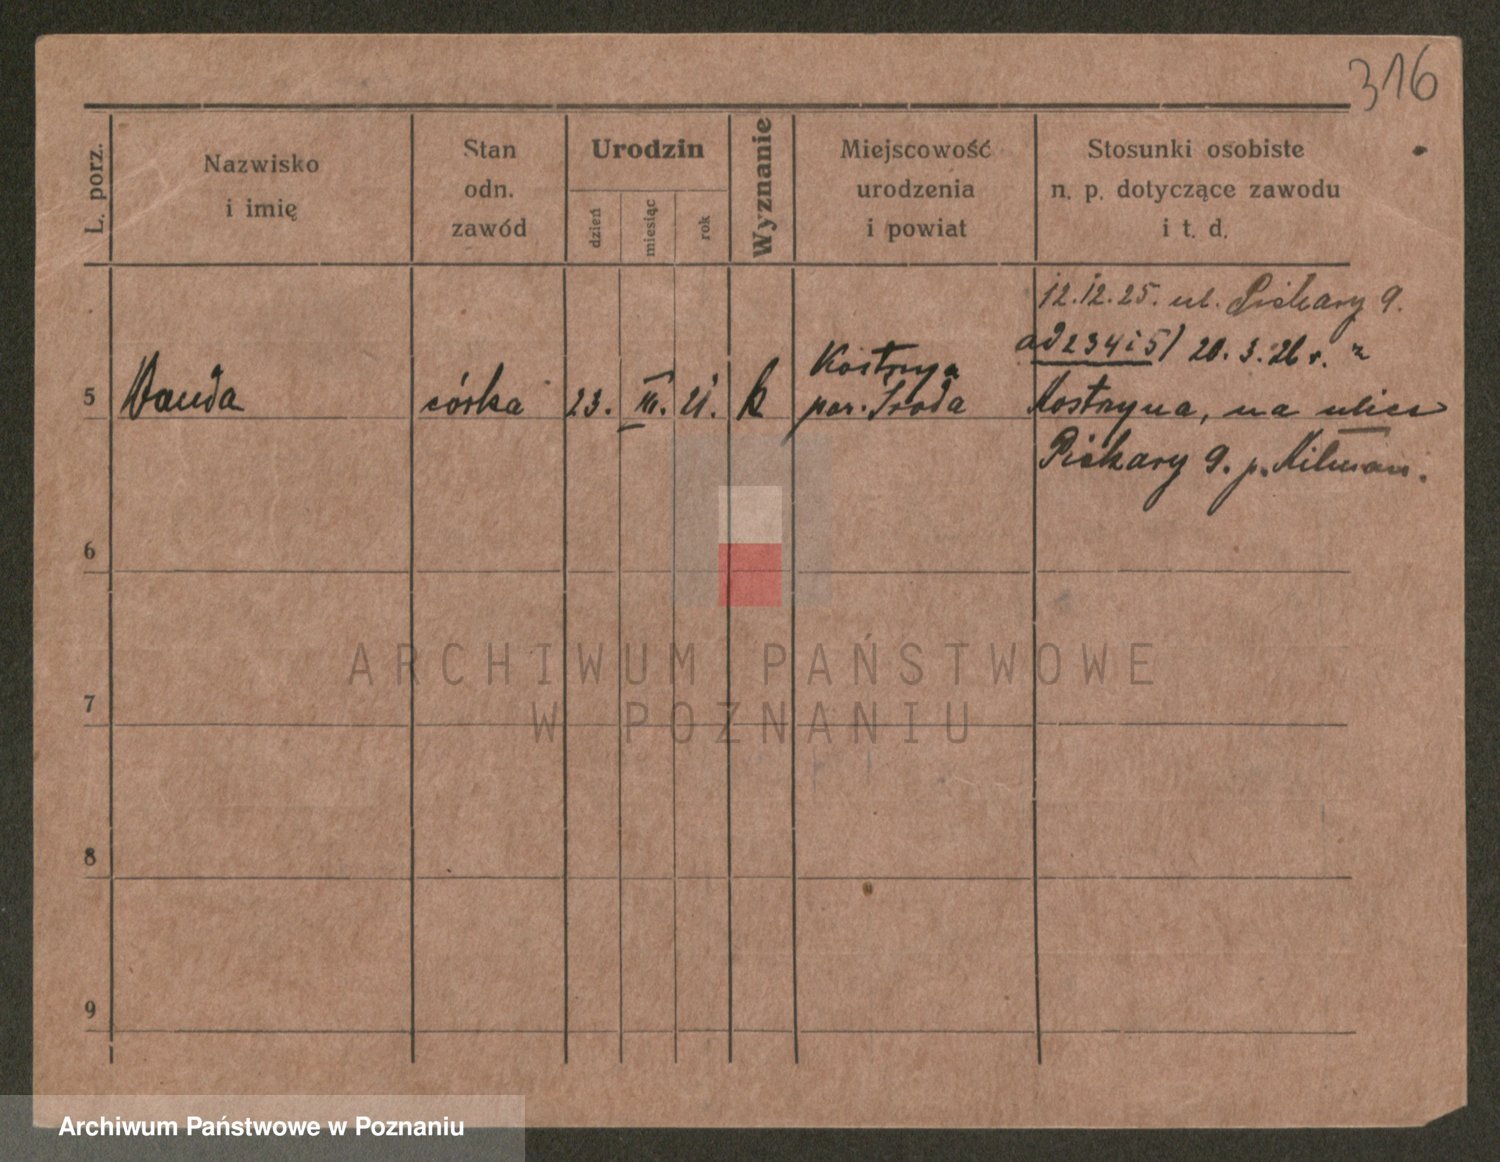 316
L. porz.
Nazwisko
i imię
Stan
odn.
zawód
Urodzin
dzień
miesiąc
rok
Wyznanie
Miejscowość
urodzenia
i powiat
Stosunki osobiste
n. p. dotyczące zawodu
i t. d.
12.12.25. ul. Piekary 9.
ad 2 3 4 i 5) 20. 3. 26 r. z
5 Wanda córka 23. III. 21. k Kostrzyn
pow. Środa
Kostrzyna, na ulice
Piekary 9. p.
6
7
8
9
ARCHIWUM PAŃSTWOWE
W POZNANIU
Archiwum Państwowe w Poznaniu